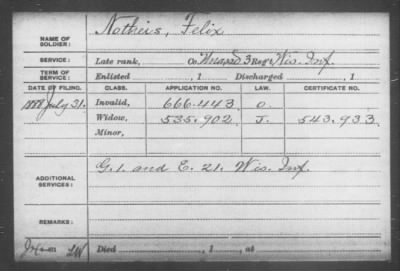 NAME OF SOLDIER: Notheis, Felix
SERVICE: Late rank, Co. Unassd 3 Reg't Wis. Inf.
TERM OF SERVICE: Enlisted , 1 Discharged , 1
DATE OF FILING. CLASS. APPLICATION NO. LAW. CERTIFICATE NO.
1888 July 31. Invalid, 666.443 O.
Widow, 535.902 J. 543.933
Minor,
ADDITIONAL SERVICES: G. 1. and E. 21. Wis. Inf.
REMARKS:
Died , 1 , at